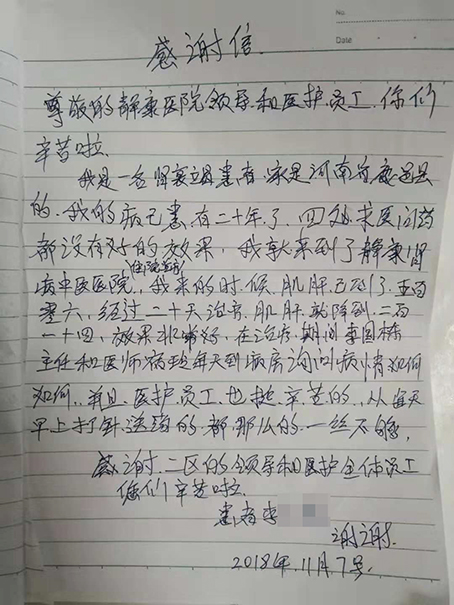 No.
Date
感谢信.
尊敬的静康医院领导和医护员工.你们
辛苦啦.
我是一名肾衰竭患者.家是河南省鹿邑县
的.我的病已患有二十年了.四处求医问药
都没有好的效果,我就来到了静康肾
病中医医院,住院治疗.我来的时候,肌肝已到了.五百
零六,经过二十天治疗.肌肝就降到.二百
一十四,效果非常好,在治疗期间李国栋
主任和医师 每天到病房询问病情如何
如何..并且.医护员工也挺辛苦的.从每天
早上打针送药的.都那么的.一丝不
感谢.二区的领导和医护全体员工
您们辛苦啦.
患者李
谢谢.
2018年.11月7号.